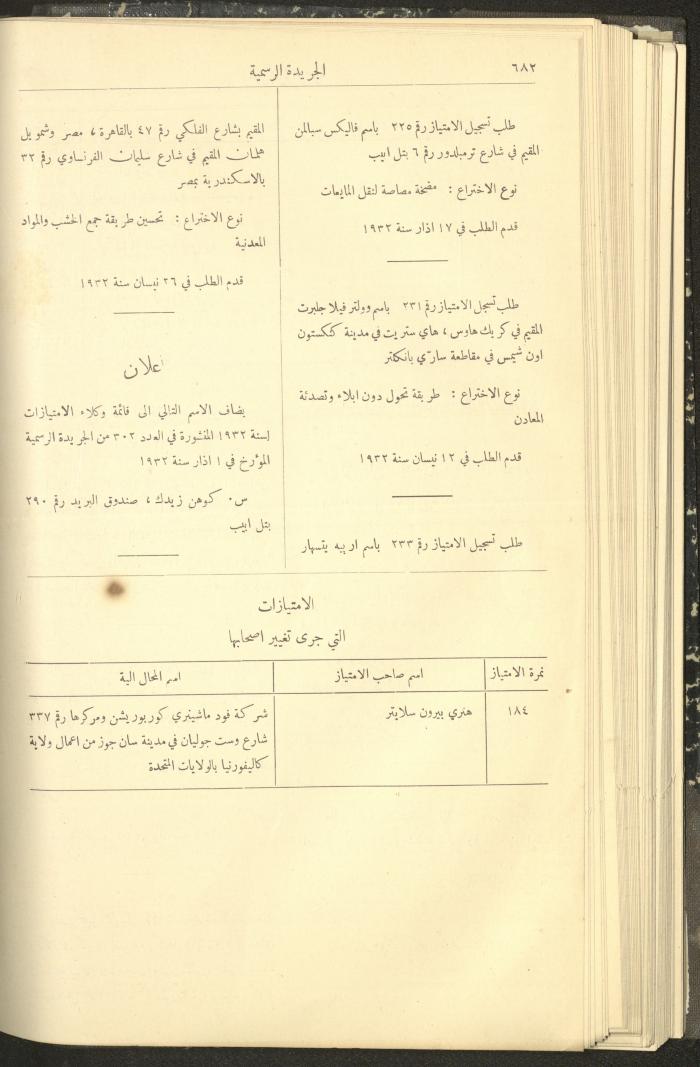 ٦٨٢
الجريدة الرسمية
طلب تسجيل الامتياز رقم ٢٢٥ باسم فاليكس سبالمن
المقيم في شارع ترمبلدور رقم ٦ بتل ابيب
نوع الاختراع : مضخة مصاصة لنقل المايعات
قدم الطلب في ١٧ اذار سنة ١٩٣٢
طلب تسجل الامتياز رقم ٢٣١ باسم وولتر فيلا جلبرت
المقيم في كريك هاوس ، هاي ستريت في مدينة كنكستون
اون شيمس في مقاطعة ساري بانكلتر
نوع الاختراع : طريقة تحول دون ابلاء وتصدئة
المعادن
قدم الطلب في ١٢ نيسان سنة ١٩٣٢
طلب تسجيل الامتياز رقم ٢٣٣ باسم اريه يتسهار
المقيم بشارع الفلكي رقم ٤٧ بالقاهرة ، مصر وشمويل
هلمان المقيم في شارع سليمان الفرنساوي رقم ٣٢
بالاسكندرية بمصر
نوع الاختراع : تحسين طريقة جمع الخشب والمواد
المعدنية
قدم الطلب في ٢٦ نيسان سنة ١٩٣٢
اعلان
يضاف الاسم التالي الى قائمة وكلاء الامتيازات
لسنة ١٩٣٢ المنشورة في العدد ٣٠٢ من الجريدة الرسمية
المؤرخ في ١ اذار سنة ١٩٣٢
س. كوهن زيدك ، صندوق البريد رقم ٢٩٠
بتل ابيب
الامتيازات
التي جرى تغيير اصحابها
نمرة الامتياز اسم صاحب الامتياز اسم المحال اليه
١٨٤ هنري بيرون سلايتر شركة فود ماشينري كوربوريشن ومركزها رقم ٣٣٧
شارع وست جوليان في مدينة سان جوز من اعمال ولاية
كاليفورنيا بالولايات المتحدة